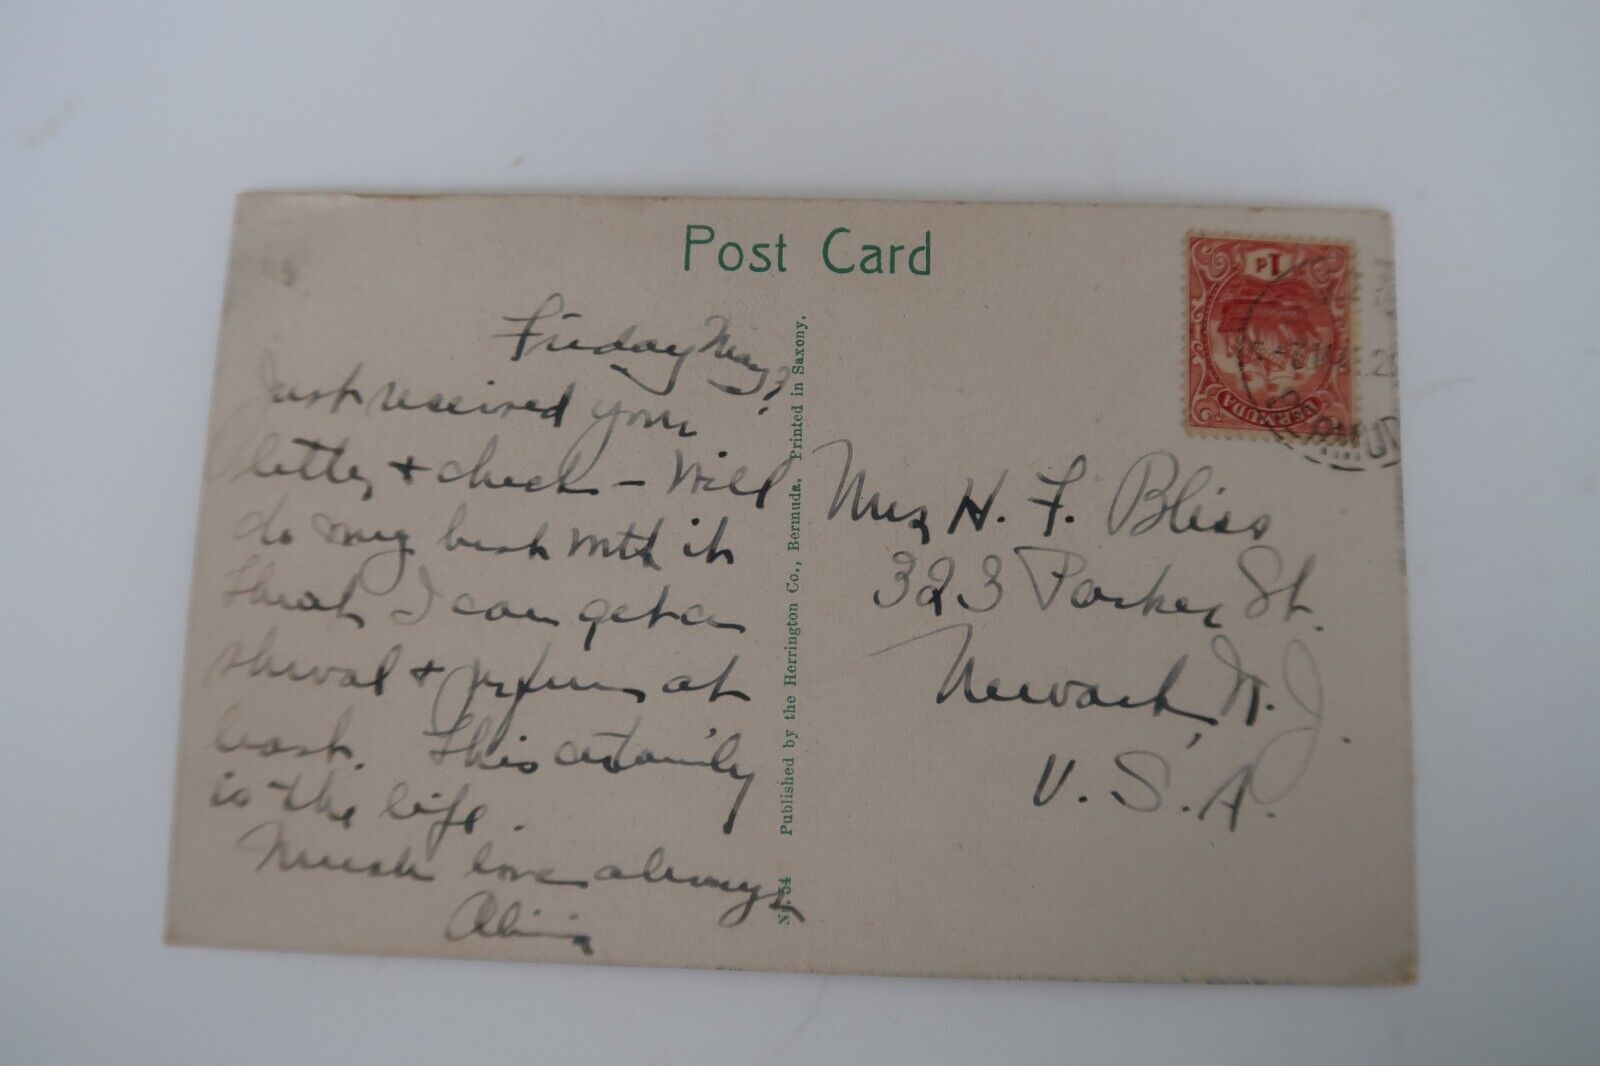 Post Card
Friday May 7
Just received your
letter & check – Will
do my best with it
think I can get a
shawl & perfume at
least. This certainly
is the life.
Much love always
No. 54 Published by the Herrington Co., Bermuda. Printed in Saxony.
1d
BERMUDA
Mrs H. F. Bliss
323 Parker St.
Newark, N. J.
U. S. A.